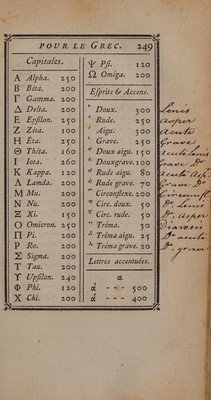 POUR LE GREC. 249
Capitales.
Α Alpha. 250
Β Bita. 200
Γ Gamma. 200
Δ Delta. 200
Ε Epsilon. 250
Ζ Zéta. 100
Η Eta. 250
Θ Thita. 160
Ι Iota. 260
Κ Kappa. 120
Λ Lamda. 200
Μ Mu. 200
Ν Nu. 200
Ξ Xi. 150
Ο Omicron. 250
Π Pi. 200
Ρ Ro. 200
Σ Sigma. 200
Τ Tau. 200
Υ Upsilon. 240
Φ Phi. 120
Χ Chi. 200
Ψ Psi. 120
Ω Oméga. 200
Esprits & Accens.
Doux. 300 Lenis
Rude. 250 Asper
Aigu. 300 Acute
Grave. 250 Grave
Doux aigu. 150 Acute Lenis
Doux grave. 100 Grave Do
Rude aigu. 80 Acute Asp.
Rude grave. 70 Grave Do
Circonflexe. 200 Circumf
Circ. doux. 50 Do Lenis
Circ. rude. 50 Do Asper
Tréma. 30 Diæresis
Tréma aigu. 25 Do acute
Tréma grave. 20 Do grave
Lettres accentuées.
α
ά --- 500
ὰ --- 400